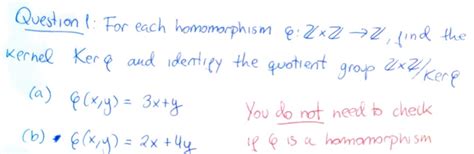 Question 1: For each homomorphism φ: ℤ×ℤ → ℤ, find the
kernel Ker φ and identify the quotient group ℤ×ℤ/Ker φ
(a) φ(x,y) = 3x+y
You do not need to check
(b) φ(x,y) = 2x + 4y
if φ is a homomorphism